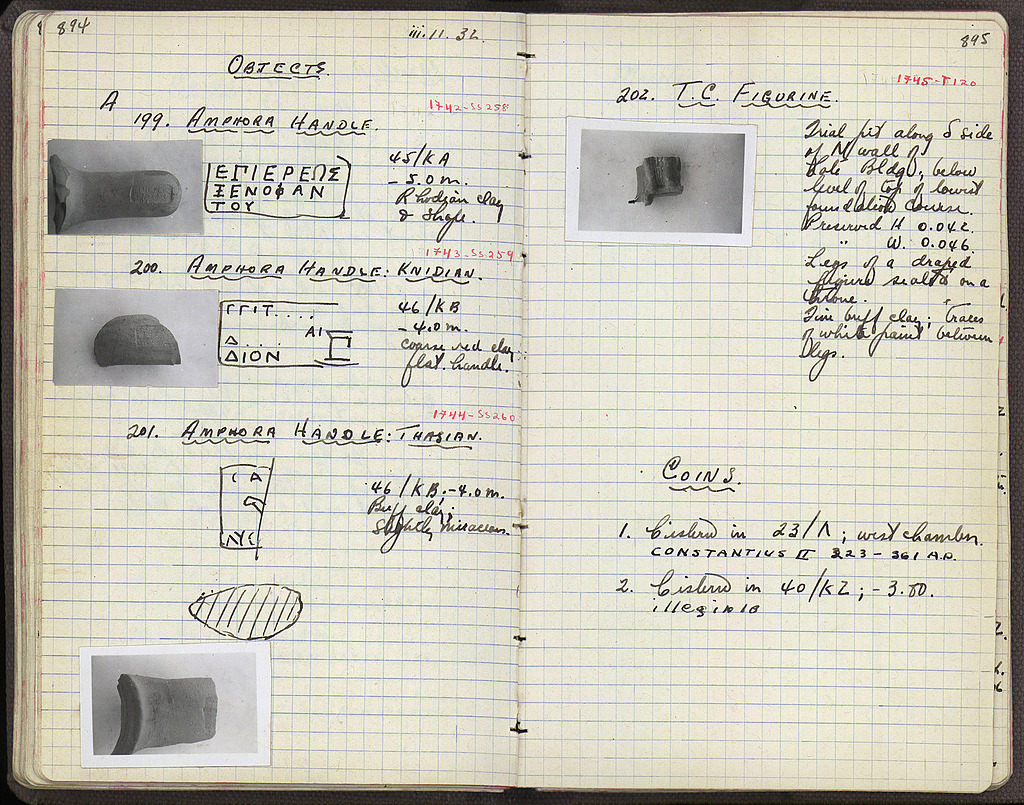 894
iii.11.32.
OBJECTS
A
1742-SS258
199. AMPHORA HANDLE.
ΕΠΙΕΡΕΠΣ
ΞΕΝΟΦΑΝ
ΤΟΥ
45/KA
-5.0 m.
Rhodian clay
& shape.
1743-SS259
200. AMPHORA HANDLE: KNIDIAN.
ΓΓΙΤ....
ΑΙ
Δ....
ΔΙΟΝ
46/KB
-4.0 m.
coarse red clay
flat handle.
1744-SS260
201. AMPHORA HANDLE: THASIAN.
46/KB; -4.0 m.
Buff clay;
slightly micaceous.
895
1745-T120
202. T.C. FIGURINE.
Trial pit along S side
of N wall of
Late Bldg; below
level of top of lowest
foundation course.
Preserved H 0.042.
" W. 0.046
Legs of a draped
figure seated on a
throne.
Fine buff clay; traces
of white paint between
legs.
COINS.
1. Cistern in 23/Λ; west chamber.
CONSTANTIUS II 323-361 A.D.
2. Cistern in 40/KZ; -3.50.
illegible